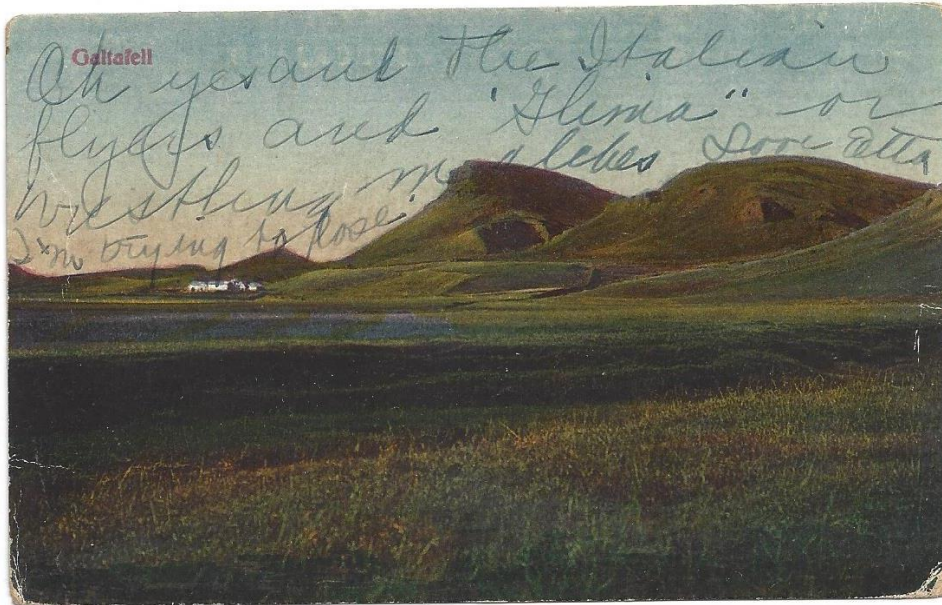 Galtafell
Oh yes and the Italian
flyers and "Glima" or
wrestling matches Love Etta
I'm trying to close